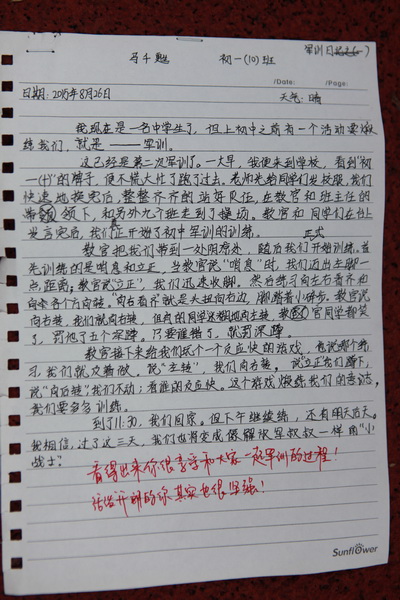 军训日记(一)
初一(10)班
/Date: /Page:
日期:2015年8月26日 天气:晴
我现在是一名中学生了,但上初中之前有一个活动要煅
练我们,就是——军训。
这已经是第二次军训了。一大早,我便来到学校,看到“初
一(十)”的牌子,便不慌不忙了跑了过去。老师先给同学们发校服,我们
快速地换完后,整整齐齐的站好队伍,在教官和班主任的
带领下,和另外九个班走到了操场。教官和同学们在台上
发言完后,我们正式开始了初中军训的训练。
教官把我们带到一处阴凉处,随后我们开始训练。首
先训练的是哨息和立正,当教官说“哨息”时,我们迈出左脚一
点距离;教官说“立正”,我们迅速收脚。然后练习向左右看齐和
向各个方向转。“向右看齐”就是头扭向右边,脚踏着小碎步。教官说
向右转,我们就向右转,但有的同学还朝相向左转,教官同学都笑
了,罚他了五个深蹲。只要谁错了,就罚深蹲。
教官接下来给我们玩了一个反应快的游戏,他说那个练
习,我们就反着做。说“左转”,我们向右转。说立正我们蹲下,
说“向后转”我们不动;看谁的反应快。这个游戏煅练我们的专注,
我们要多多训练。
到了11:30,我们回家。但下午继续练,还有明天后天。
我相信,过了这三天,我们也将变成像解放军叔叔一样的“小
战士”。
看得出来你很享受和大家一起军训的过程!
活泼开朗的你其实也很坚强!
Sunflower